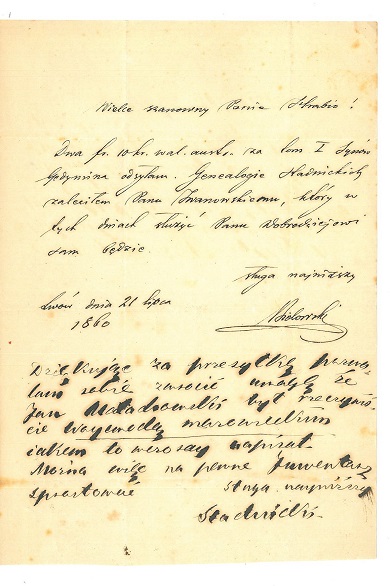 Wielce szanowny Panie Hrabio!
Dwa fr. 10 kr. wal. austr. za tom I Synów
Gedymina odsyłam. Genealogię Stadnickich
zaleciłem Panu Iwanowskiemu, który w
tych dniach służyć Panu Dobrodziejowi
sam będzie.
sługa najniższy
Lwów dnia 21 lipca
1860
Bielowski
Dziękując za przesyłkę pozwa-
lam sobie zwrócić uwagę że
Jan był rzeczywiś-
cie wojewodą mazowieckim
jakem to wczoraj napisał.
Można więc na pewne
sprostować sługa najniższy
Stadnicki